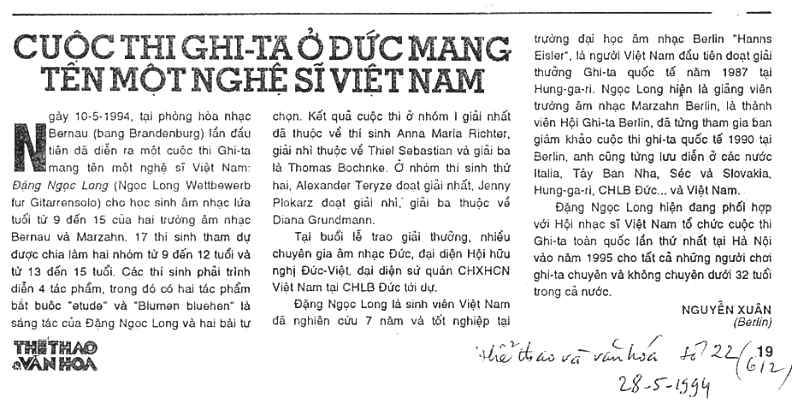 CUỘC THI GHI-TA Ở ĐỨC MANG
TÊN MỘT NGHỆ SĨ VIỆT NAM
Ngày 10-5-1994, tại phòng hòa nhạc
Bernau (bang Brandenburg) lần đầu
tiên đã diễn ra một cuộc thi Ghi-ta
mang tên một nghệ sĩ Việt Nam:
Đặng Ngọc Long (Ngọc Long Wettbewerb
fur Gitarrensolo) cho học sinh âm nhạc lứa
tuổi từ 9 đến 15 của hai trường âm nhạc
Bernau và Marzahn. 17 thí sinh tham dự
được chia làm hai nhóm từ 9 đến 12 tuổi và
từ 13 đến 15 tuổi. Các thí sinh phải trình
diễn 4 tác phẩm, trong đó có hai tác phẩm
bắt buộc "etude" và "Blumen bluehen" là
sáng tác của Đặng Ngọc Long và hai bài tự
chọn. Kết quả cuộc thi ở nhóm I giải nhất
đã thuộc về thí sinh Anna Maria Richter,
giải nhì thuộc về Thiel Sebastian và giải ba
là Thomas Bochnke. Ở nhóm thí sinh thứ
hai, Alexander Teryze đoạt giải nhất, Jenny
Plokarz đoạt giải nhì, giải ba thuộc về
Diana Grundmann.
Tại buổi lễ trao giải thưởng, nhiều
chuyên gia âm nhạc Đức, đại diện Hội hữu
nghị Đức-Việt, đại diện sứ quán CHXHCN
Việt Nam tại CHLB Đức tới dự.
Đặng Ngọc Long là sinh viên Việt Nam
đã nghiên cứu 7 năm và tốt nghiệp tại
trường đại học âm nhạc Berlin "Hanns
Eisler", là người Việt Nam đầu tiên đoạt giải
thưởng Ghi-ta quốc tế năm 1987 tại
Hung-ga-ri. Ngọc Long hiện là giảng viên
trường âm nhạc Marzahn Berlin, là thành
viên Hội Ghi-ta Berlin, đã từng tham gia ban
giám khảo cuộc thi ghi-ta quốc tế 1990 tại
Berlin, anh cũng từng lưu diễn ở các nước
Italia, Tây Ban Nha, Séc và Slovakia,
Hung-ga-ri, CHLB Đức... và Việt Nam.
Đặng Ngọc Long hiện đang phối hợp
với Hội nhạc sĩ Việt Nam tổ chức cuộc thi
Ghi-ta toàn quốc lần thứ nhất tại Hà Nội
vào năm 1995 cho tất cả những người chơi
ghi-ta chuyên và không chuyên dưới 32 tuổi
trong cả nước.
NGUYỄN XUÂN
(Berlin)
THỂ THAO
& VĂN HÓA
19
Thể thao và văn hóa số 22 (612)
28-5-1994